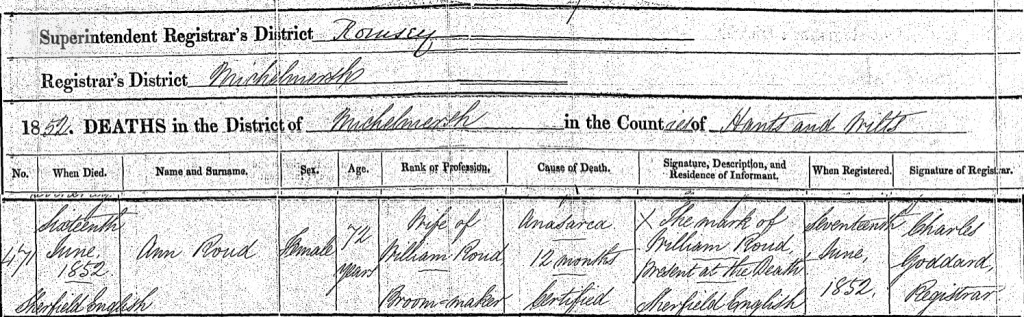 Superintendent Registrar's District Romsey
Registrar's District Michelmersh
1852. DEATHS in the District of Michelmersh in the Counties of Hants and Wilts
No. When Died. Name and Surname. Sex. Age. Rank or Profession. Cause of Death. Signature, Description, and Residence of Informant. When Registered. Signature of Registrar.
471
Sixteenth
June,
1852.
Sherfield English
Ann Roud
Female
72
years
Wife of
William Roud
Broom-maker
Anasarca
12 months
Certified
X The mark of
William Roud,
Present at the Death
Sherfield English
Seventeenth
June,
1852.
Charles
Goddard,
Registrar.